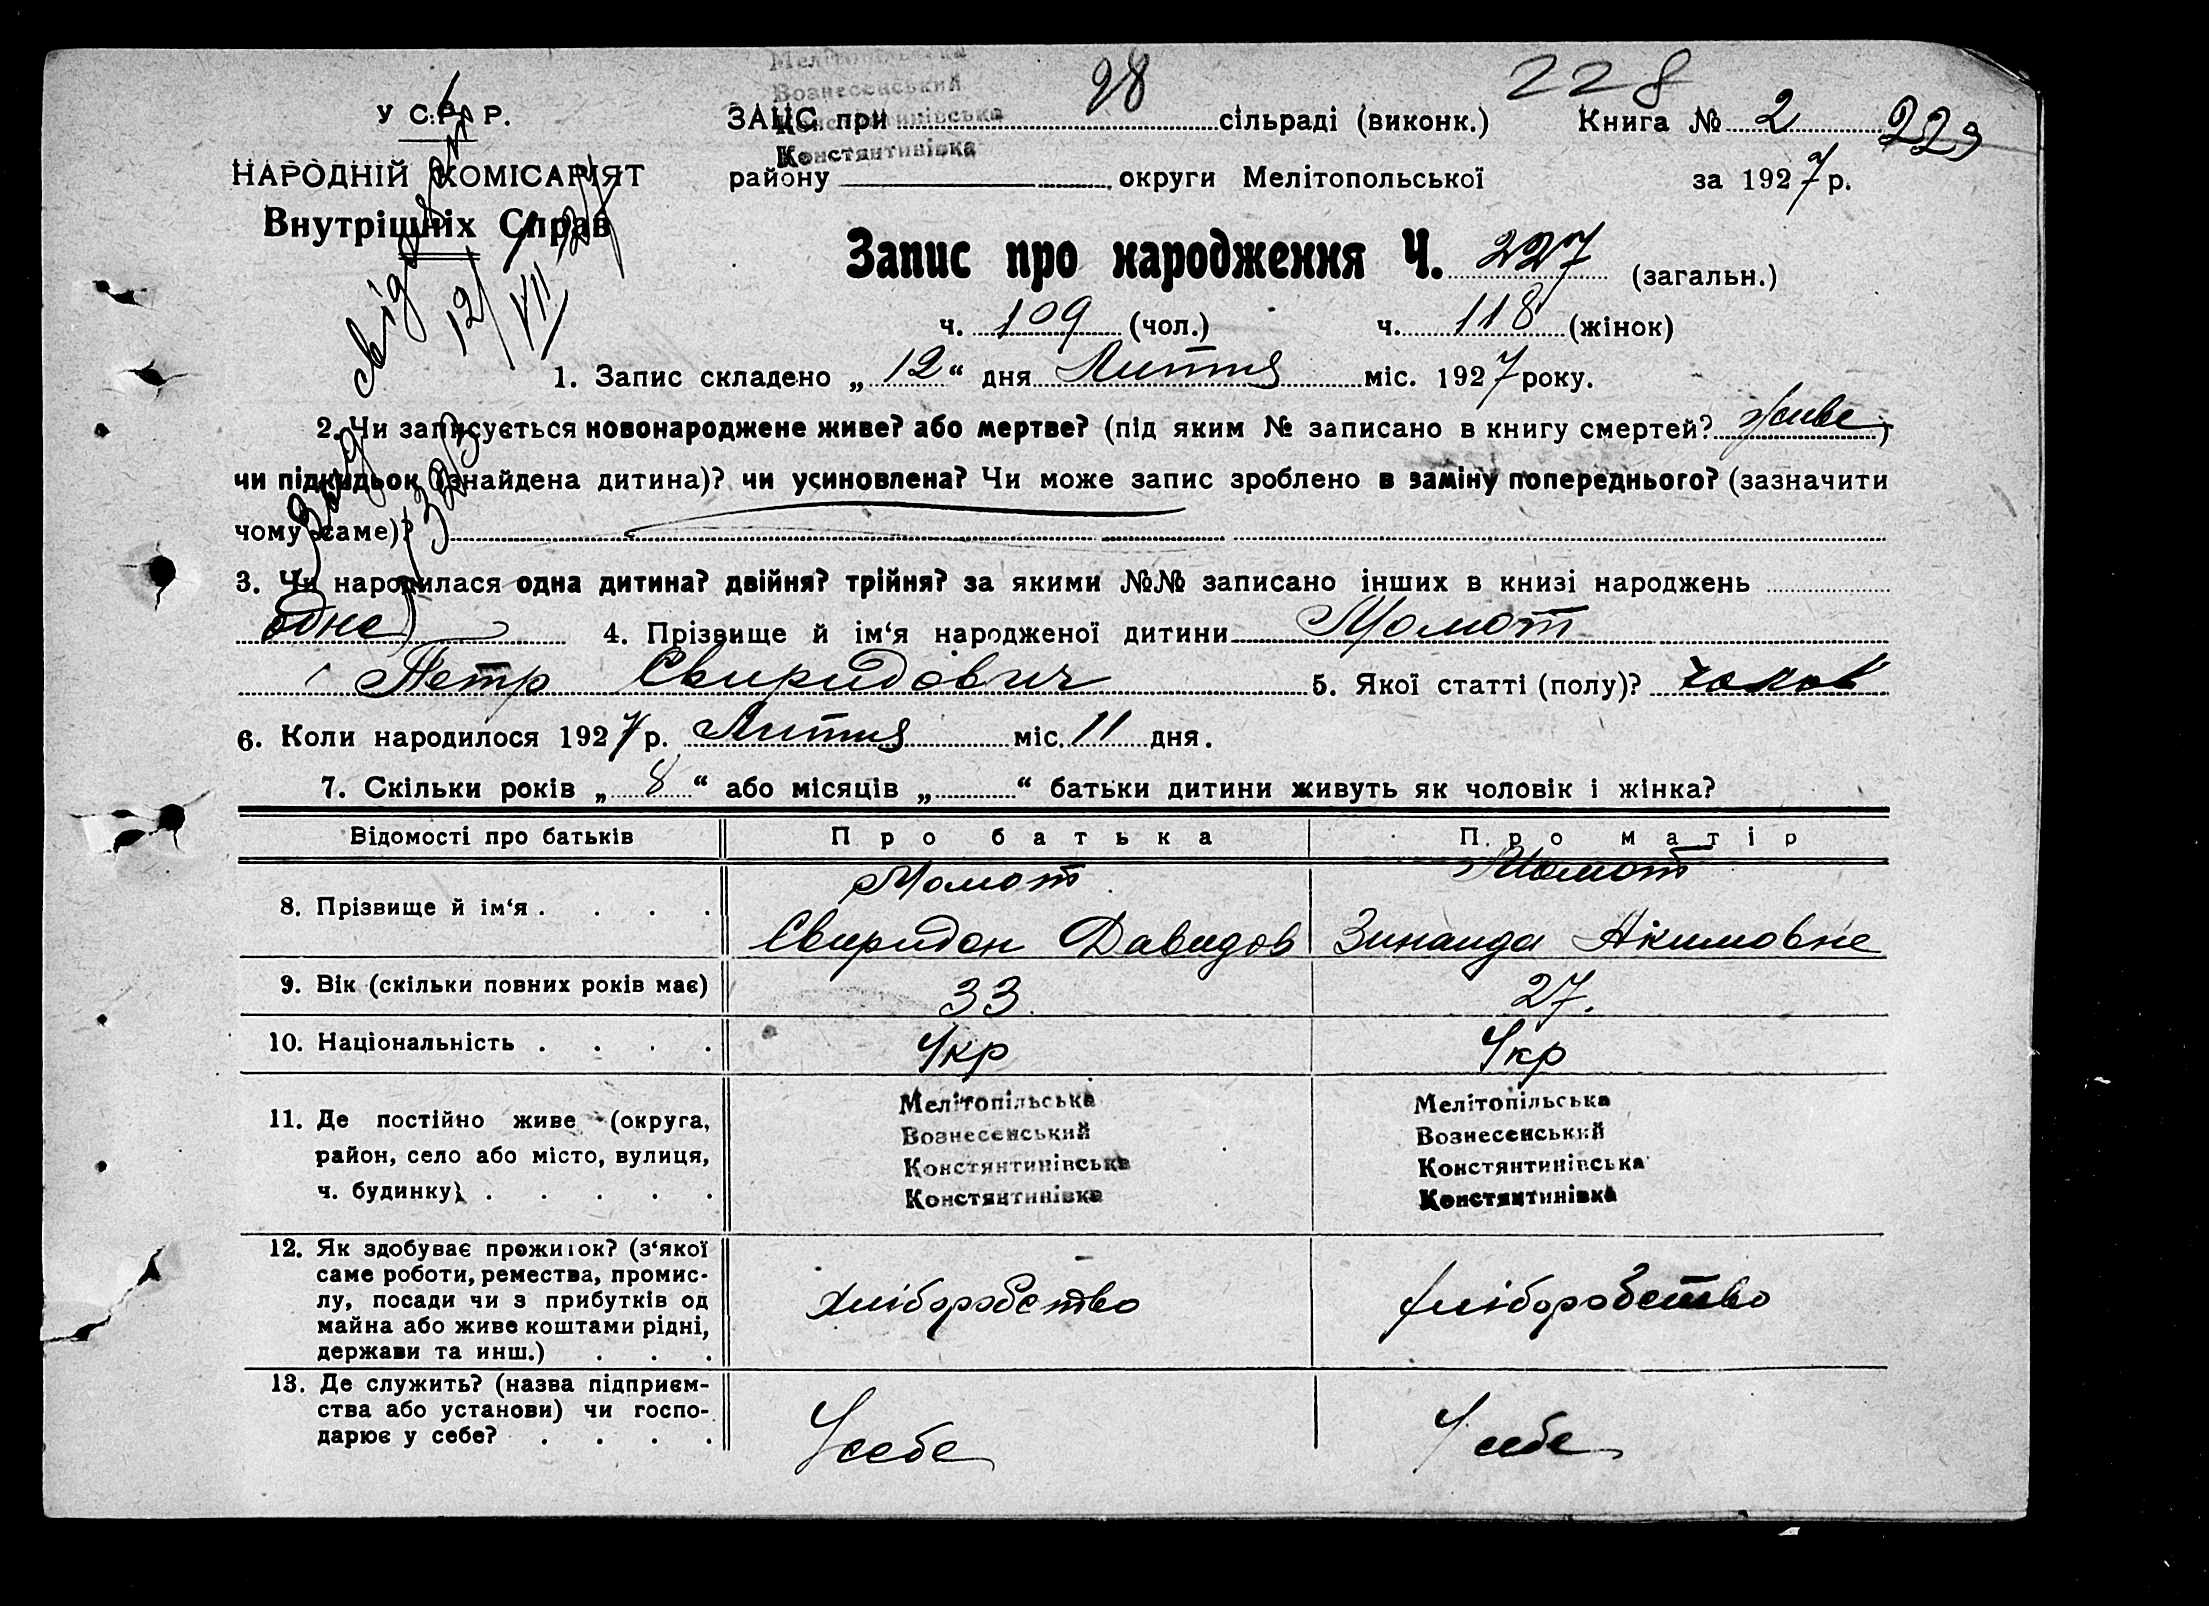 Мелітопільська
Вознесенський
Констянтинівська
Констянтинівка
98
228
У С.Р.Р. ЗАЦС при сільраді (виконк.) Книга № 2 229
НАРОДНІЙ КОМІСАРІЯТ району округи Мелітопольської за 1927 р.
Внутрішніх Справ
Запис про народження Ч. 227 (загальн.)
ч. 109 (чол.) ч. 118 (жінок)
12/VII
1. Запис складено „ 12 “ дня Липня міс. 1927 року.
2. Чи записується новонароджене живе? або мертве? (під яким № записано в книгу смертей? живе )
чи підкидьок (знайдена дитина)? чи усиновлена? Чи може запис зроблено в заміну попереднього? (зазначити
чому саме)?
3. Чи народилася одна дитина? двійня? трійня? за якими №№ записано інших в книзі народжень
одне 4. Прізвище й ім‘я народженої дитини Момот
Петр Свиридович 5. Якої статті (полу)? чолов
6. Коли народилося 1927 р. Липня міс. 11 дня.
7. Скільки років „ 8 “ або місяців „ “ батьки дитини живуть як чоловік і жінка?
Відомості про батьків Про батька Про матір
Момот Момот
8. Прізвище й ім‘я . . . .
Свиридон Давидов Зинаида Акимовне
9. Вік (скільки повних років має) 33 27.
10. Національність . . . . Укр Укр
Мелітопільська Мелітопільська
11. Де постійно живе (округа, Вознесенський Вознесенський
район, село або місто, вулиця, Констянтинівська Констянтинівська
ч. будинку) . . . . . Констянтинівка Констянтинівка
12. Як здобуває прожиток? (з‘якої
саме роботи, ремества, промис-
лу, посади чи з прибутків од хліборобство хліборобство
майна або живе коштами рідні,
держави та инш.) . . .
13. Де служить? (назва підприєм-
ства або установи) чи госпо-
дарює у себе? . . . . У себе У себе